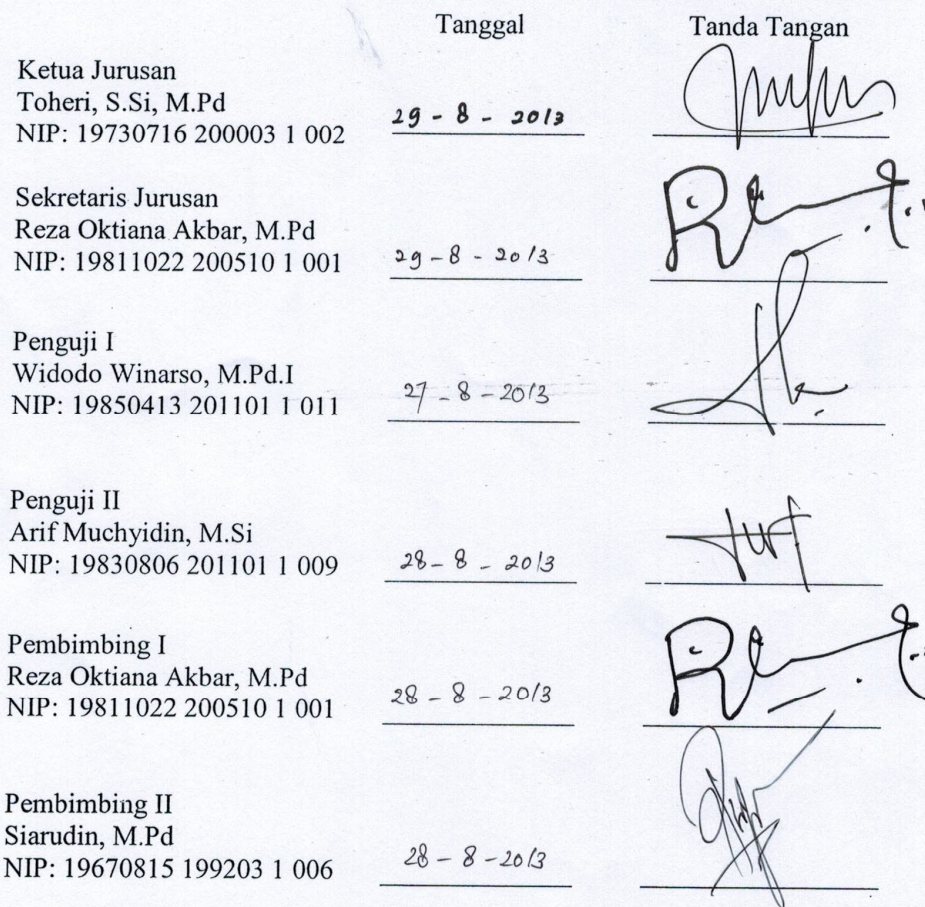 Tanggal Tanda Tangan
Ketua Jurusan
Toheri, S.Si, M.Pd
NIP: 19730716 200003 1 002 29 - 8 - 2013
Sekretaris Jurusan
Reza Oktiana Akbar, M.Pd
NIP: 19811022 200510 1 001 29 - 8 - 2013
Penguji I
Widodo Winarso, M.Pd.I
NIP: 19850413 201101 1 011 27 - 8 - 2013
Penguji II
Arif Muchyidin, M.Si
NIP: 19830806 201101 1 009 28 - 8 - 2013
Pembimbing I
Reza Oktiana Akbar, M.Pd
NIP: 19811022 200510 1 001 28 - 8 - 2013
Pembimbing II
Siarudin, M.Pd
NIP: 19670815 199203 1 006 28 - 8 - 2013